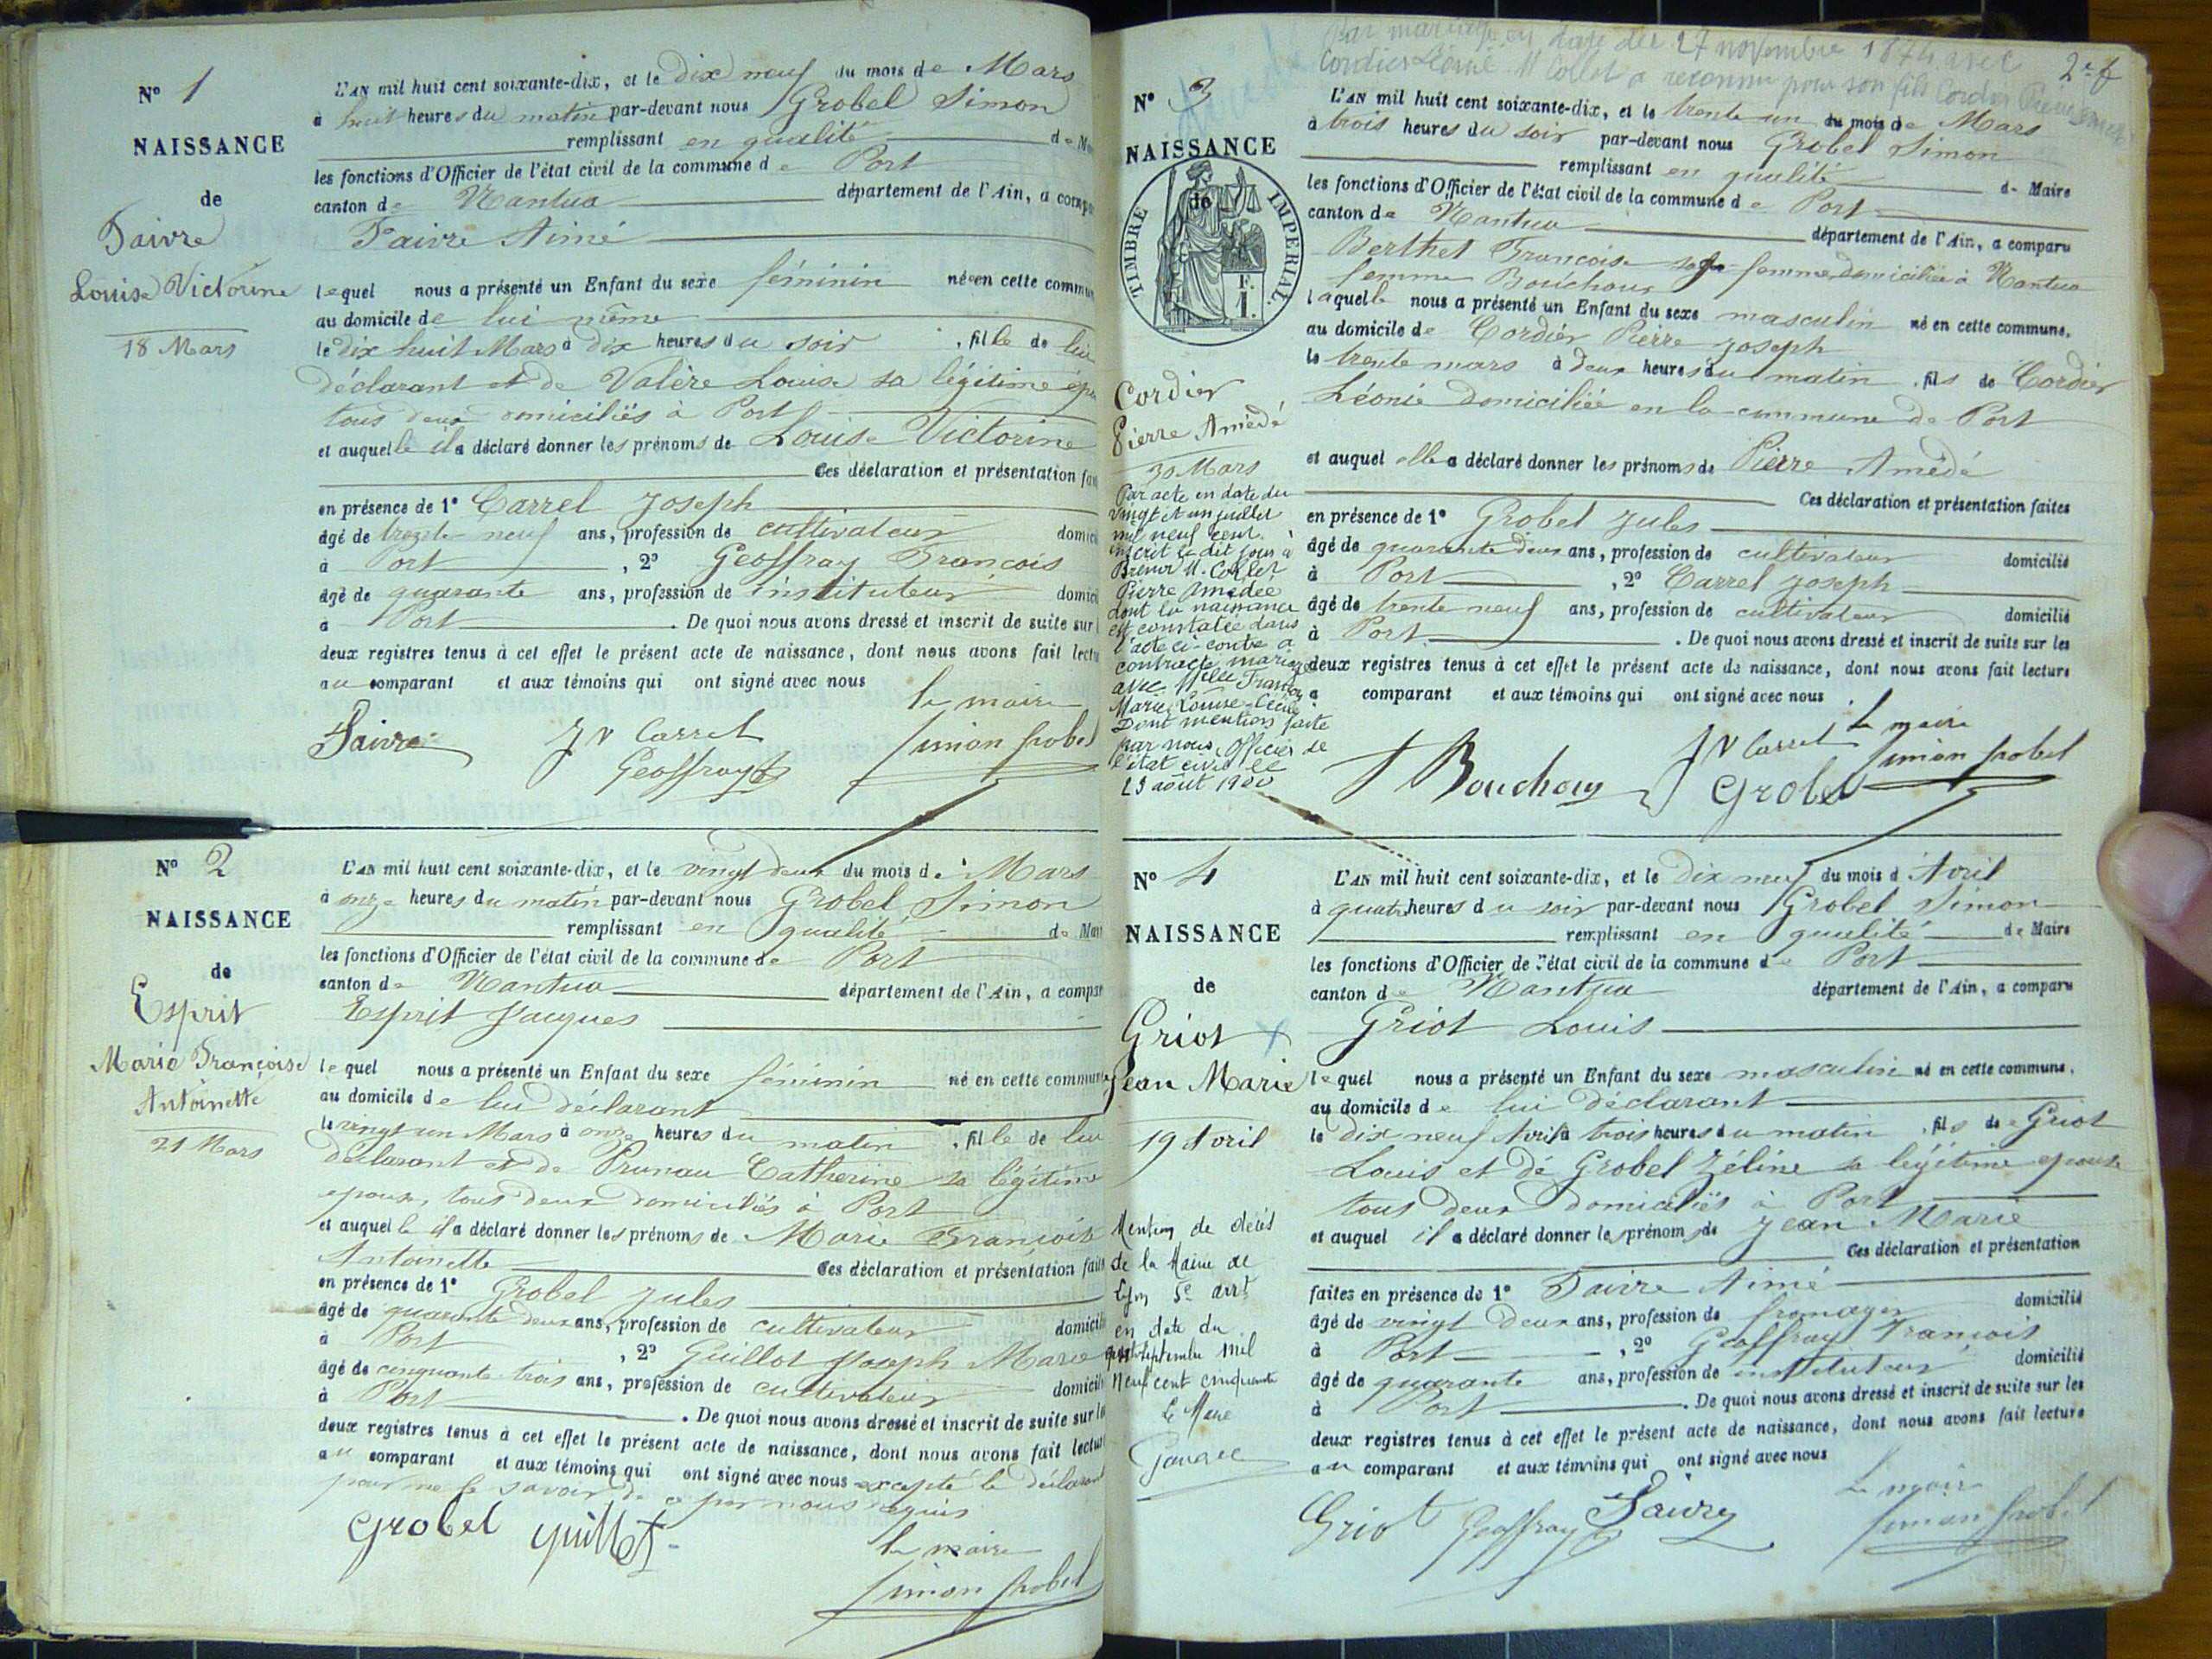 N° 1
NAISSANCE
de
Faivre
Louise Victorine
18 Mars
L'AN mil huit cent soixante-dix, et le dix neuf du mois de Mars
à huit heures du matin par-devant nous Grobel Simon
remplissant en qualité de
les fonctions d'Officier de l'état civil de la commune de Port
canton de Nantua département de l'Ain, a comp
Faivre Aimé
lequel nous a présenté un Enfant du sexe féminin née en cette commun
au domicile de lui même
le dix huit Mars à dix heures du soir , fille de lui
déclarant et de Valère Louise sa légitime épou
tous deux domiciliés à Port
et auquelle il a déclaré donner les prénoms de Louise Victorine
Ces déclaration et présentation fai
en présence de 1° Carrel Joseph
âgé de trente neuf ans, profession de cultivateur domici
à Port , 2° Geoffray François
âgé de quarante ans, profession de instituteur domici
à Port . De quoi nous avons dressé et inscrit de suite sur l
deux registres tenus à cet effet le présent acte de naissance, dont nous avons fait lectu
au comparant et aux témoins qui ont signé avec nous
le maire
Faivre Jh Carrel Simon Grobel
Geoffray
N° 2
NAISSANCE
de
Esprit
Marie Françoise
Antoinette
21 Mars
L'AN mil huit cent soixante-dix, et le vingt deux du mois de Mars
à onze heures du matin par-devant nous Grobel Simon
remplissant en qualité de Mair
les fonctions d'Officier de l'état civil de la commune de Port
canton de Nantua département de l'Ain, a compar
Esprit Jacques
lequel nous a présenté un Enfant du sexe féminin né en cette commune
au domicile de lui déclarant
le vingt un Mars à onze heures du matin , fille de lui
déclarant et de Prunau Catherine sa légitime
épouse, tous deux domiciliés à Port
et auquelle il a déclaré donner les prénoms de Marie Françoise
Antoinette Ces déclaration et présentation faite
en présence de 1° Grobel Jules
âgé de quarante deux ans, profession de cultivateur domicili
à Port , 2° Guillot Joseph Marie
âgé de cinquante trois ans, profession de cultivateur domicili
à Port . De quoi nous avons dressé et inscrit de suite sur les
deux registres tenus à cet effet le présent acte de naissance, dont nous avons fait lectur
au comparant et aux témoins qui ont signé avec nous excepté le déclarant
pour ne le savoir de ce par nous requis
Grobel Guillot le maire
Simon Grobel
Par mariage en date du 27 novembre 1874 avec
Cordier Léonie M Collet a reconnu pour son fils Cordier Pierre
2e f
N° 3
NAISSANCE
de
TIMBRE IMPERIAL
F.
1.
Cordier
Pierre Amédé
30 Mars
Par acte en date du
vingt et un juillet
mil neuf cent
inscrit le dit jour à
Brénod M. Collet
Pierre Amédée
dont la naissance
est constatée dans
l'acte ci-contre a
contracté mariage
avec Melle
Marie Louise
Dont mention faite
par nous, Officier de
l'état civil le
23 août 1900
L'AN mil huit cent soixante-dix, et le trente un du mois de Mars
à trois heures du soir par-devant nous Grobel Simon
remplissant en qualité de Maire
les fonctions d'Officier de l'état civil de la commune de Port
canton de Nantua département de l'Ain, a comparu
Berthet Françoise sage femme, domiciliée à Nantua
femme Bouchoux
laquelle nous a présenté un Enfant du sexe masculin né en cette commune.
au domicile de Cordier Pierre Joseph
le trente mars à deux heures du matin , fils de Cordier
Léonie domiciliée en la commune de Port
et auquel elle a déclaré donner les prénoms de Pierre Amédé
Ces déclaration et présentation faites
en présence de 1° Grobel Jules
âgé de quarante deux ans, profession de cultivateur domicilié
à Port , 2° Carrel Joseph
âgé de trente neuf ans, profession de cultivateur domicilié
à Port . De quoi nous avons dressé et inscrit de suite sur les
deux registres tenus à cet effet le présent acte de naissance, dont nous avons fait lecture
a comparant et aux témoins qui ont signé avec nous .
le maire
F Bouchoux Jh Carrel Simon Grobel
Grobel
N° 4
NAISSANCE
de
Griot
Jean Marie
19 Avril
Mention de décès
de la Mairie de
Lyon 5e arrt
en date du
septembre mil
neuf cent cinquante
Le Maire
L'AN mil huit cent soixante-dix, et le dix neuf du mois d'Avril
à quatre heures du soir par-devant nous Grobel Simon
remplissant en qualité de Maire
les fonctions d'Officier de l'état civil de la commune de Port
canton de Nantua département de l'Ain, a comparu
Griot Louis
lequel nous a présenté un Enfant du sexe masculin né en cette commune.
au domicile de lui déclarant
le dix neuf Avril à trois heures du matin , fils de Griot
Louis et de Grobel Zéline sa légitime épouse
tous deux domiciliés à Port
et auquel il a déclaré donner les prénoms de Jean Marie
Ces déclaration et présentation
faites en présence de 1° Faivre Aimé
âgé de vingt deux ans, profession de fromager domicilié
à Port , 2° Geoffray François
âgé de quarante ans, profession de instituteur domicilié
à Port . De quoi nous avons dressé et inscrit de suite sur les
deux registres tenus à cet effet le présent acte de naissance, dont nous avons fait lecture
au comparant et aux témoins qui ont signé avec nous
le maire
Griot Geoffray Faivre Simon Grobel